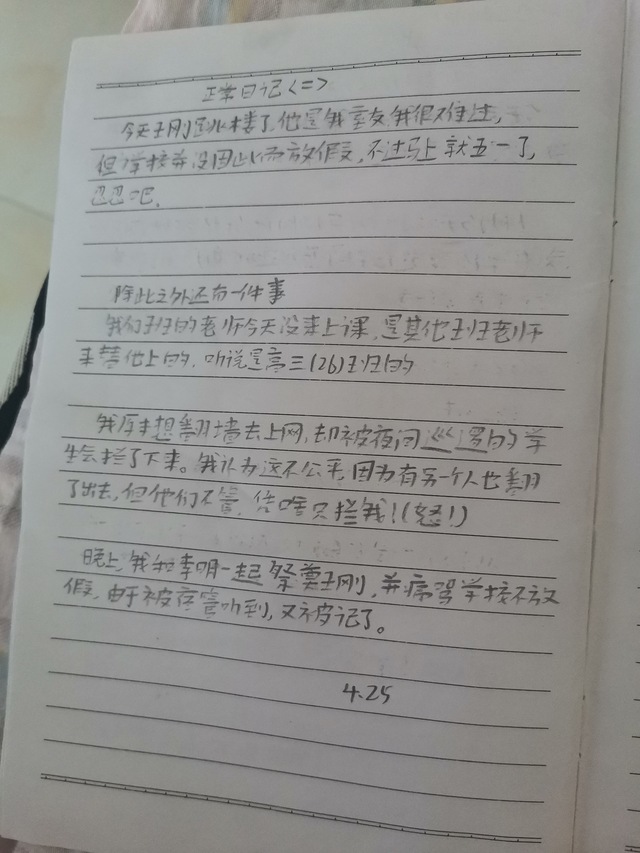 正常日记<二>
今天王刚跳楼了,他是我室友,我很难过,
但学校并没因此而放假,不过马上就五一了,
忍忍吧.
除此之外还有一件事
我们班的老师今天没来上课,是其他班老师
来替他上的,听说是高三(26)班的
我原本想翻墙去上网,却被夜间巡逻的学
生会拦了下来。我认为这不公平,因为有另一个人也翻
了出去,但他们不管,凭啥只拦我!(怒!)
晚上,我和李明一起祭奠王刚,并痛骂学校不放
假,由于被宿管听到,又被记了。
4.25